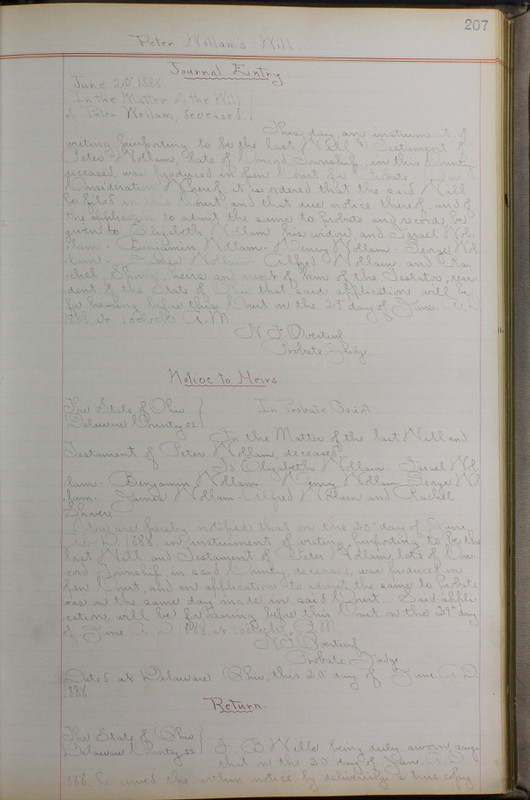 207
Peter Wollam's Will
Journal Entry
June 20" 1888.
In the Matter of the Will
of Peter Wollam, deceased.
This day, an instrument of
writing purporting to be the last Will & Testament of
Peter Wollam, late of Concord Township, in this County
deceased, was produced in open Court for Probate.
Consideration Whereof, it is ordered that the said Will
be filed in this Court and that due notice thereof, and of
the application to admit the same to probate and record, be
given to Elizabeth Wollam his widow, and Israel Wol-
lam. Benjamin Wollam. Henry Wollam. George Wol
lam. James Wollam. Alfred Wollam and Ra-
chel heirs and next of kin of the Testator, resi
dent of the State of Ohio that said application will be
for hearing before this Court on the 29" day of June A.D.
1888, at o'clock A.M.
Probate Judge
Notice to Heirs
The State of Ohio
Delaware County, ss In Probate Court
In the Matter of the last Will and
Testament of Peter Wollam, deceased
To Elizabeth Wollam. Israel Wol
lam. Benjamin Wollam. Henry Wollam. George Wol
lam. James Wollam. Alfred Wollam and Rachel
You are hereby notified that on the 20" day of June,
A.D. 1888 an instrument of writing purporting to be the
last Will and Testament of Peter Wollam, late of Con
cord Township, in said County, deceased, was produced in
open Court, and an application to admit the same to probate
was on the same day made in said Court. Said appli
cation will be for hearing before this Court on the 29" day
of June A.D. 1888 at o'clock A.M.
Probate Judge
Dated at Delaware Ohio, this 20" day of June A.D.
1888.
Return
The State of Ohio
Delaware County, ss being duly sworn, says
that on the 20" day of June A.D.
1888 he served the within notice by delivering a true copy